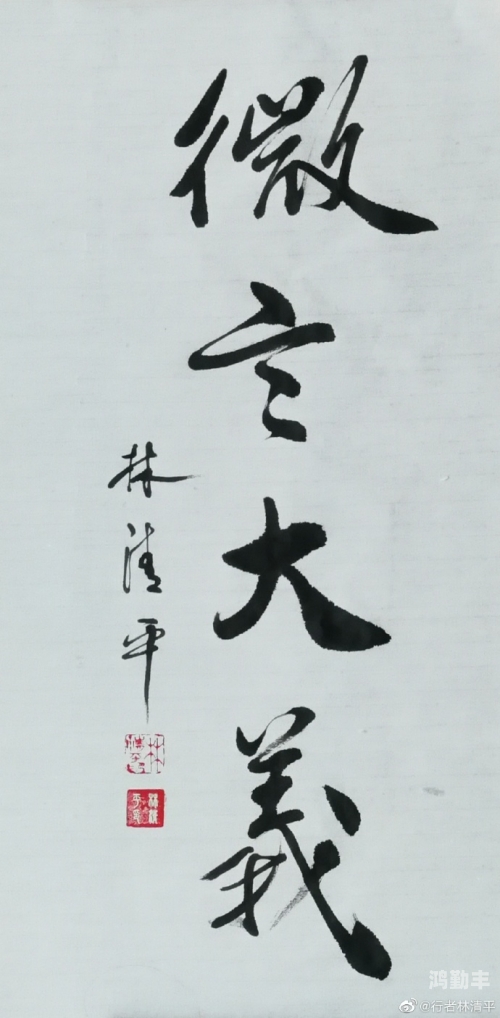 微言大義
林清平
鸿勤丰
@行者林清平